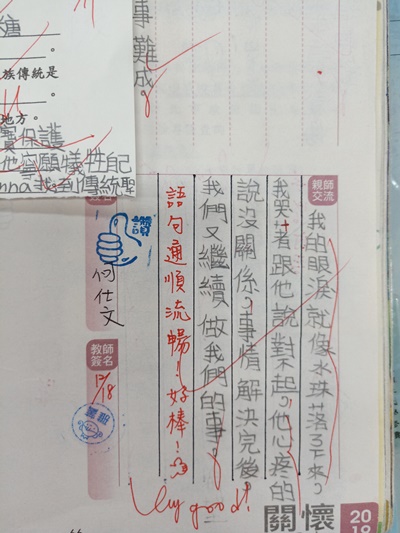 糖
。
族傳統是
。
地方。
寶保護
他寧願犧牲自己
nna 找到傳統聖
事難成。
親師交流
我的眼淚就像水珠落了下來。
我哭著跟他說對不起，他心疼的
說沒關係，事情解決完後，
我們又繼續做我們的事。
語句通順流暢！好棒！
Very good!
讚
何仕文
教師簽名
12/18
關懷
20